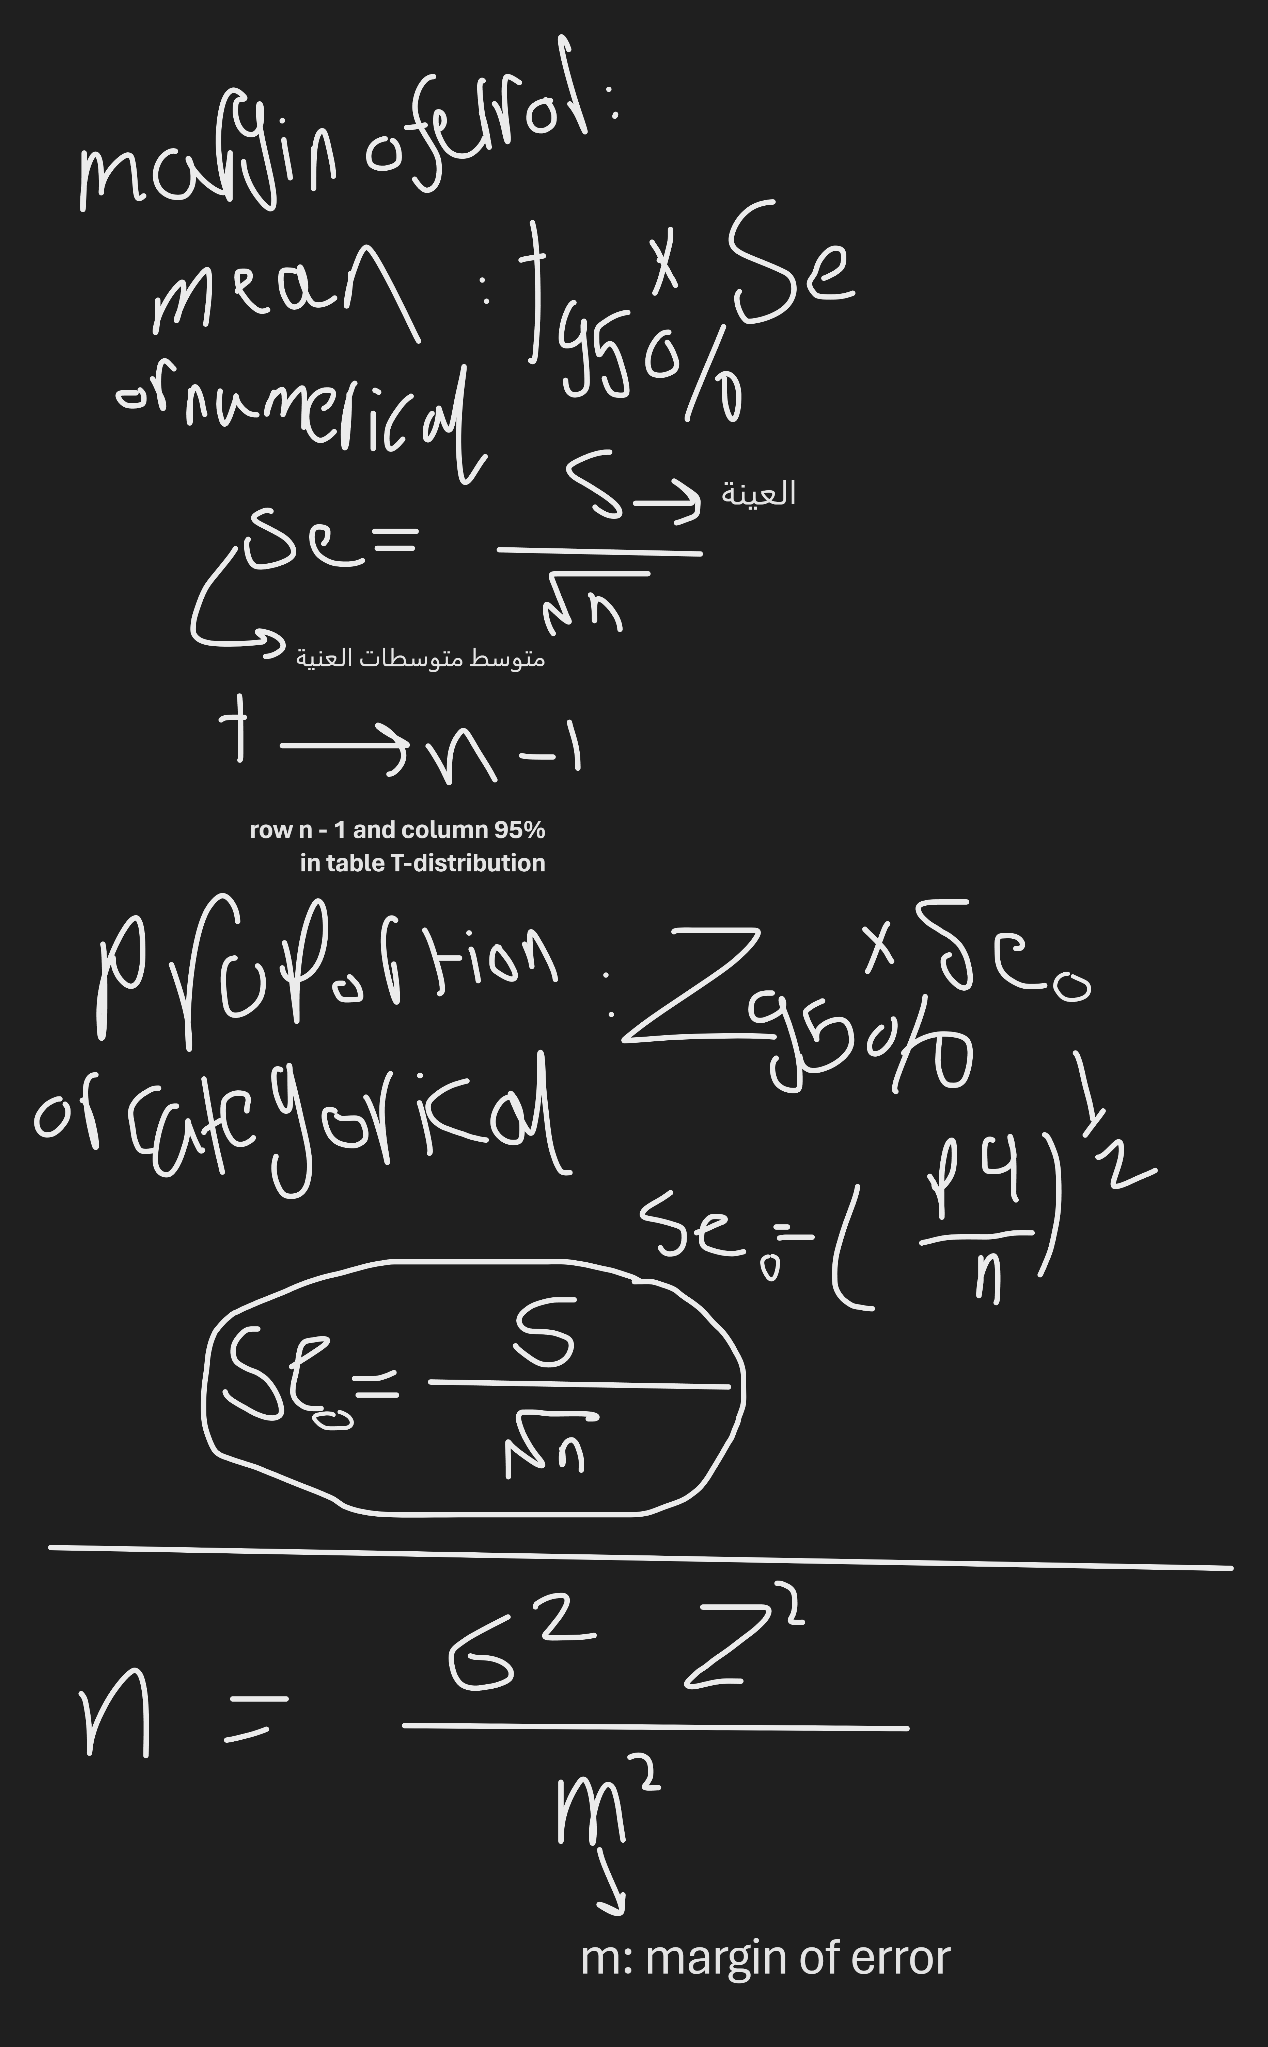 margin of error:
mean : t95% × Se
or numerical
Se = S → العينة
√n
متوسط متوسطات العنية
t → n - 1
row n - 1 and column 95%
in table T-distribution
Proportion : Z95% × Se₀
or categorical
Se₀ = (pq/n)^1/2
Se₀ = S
√n
n = σ² Z²
m²
m: margin of error